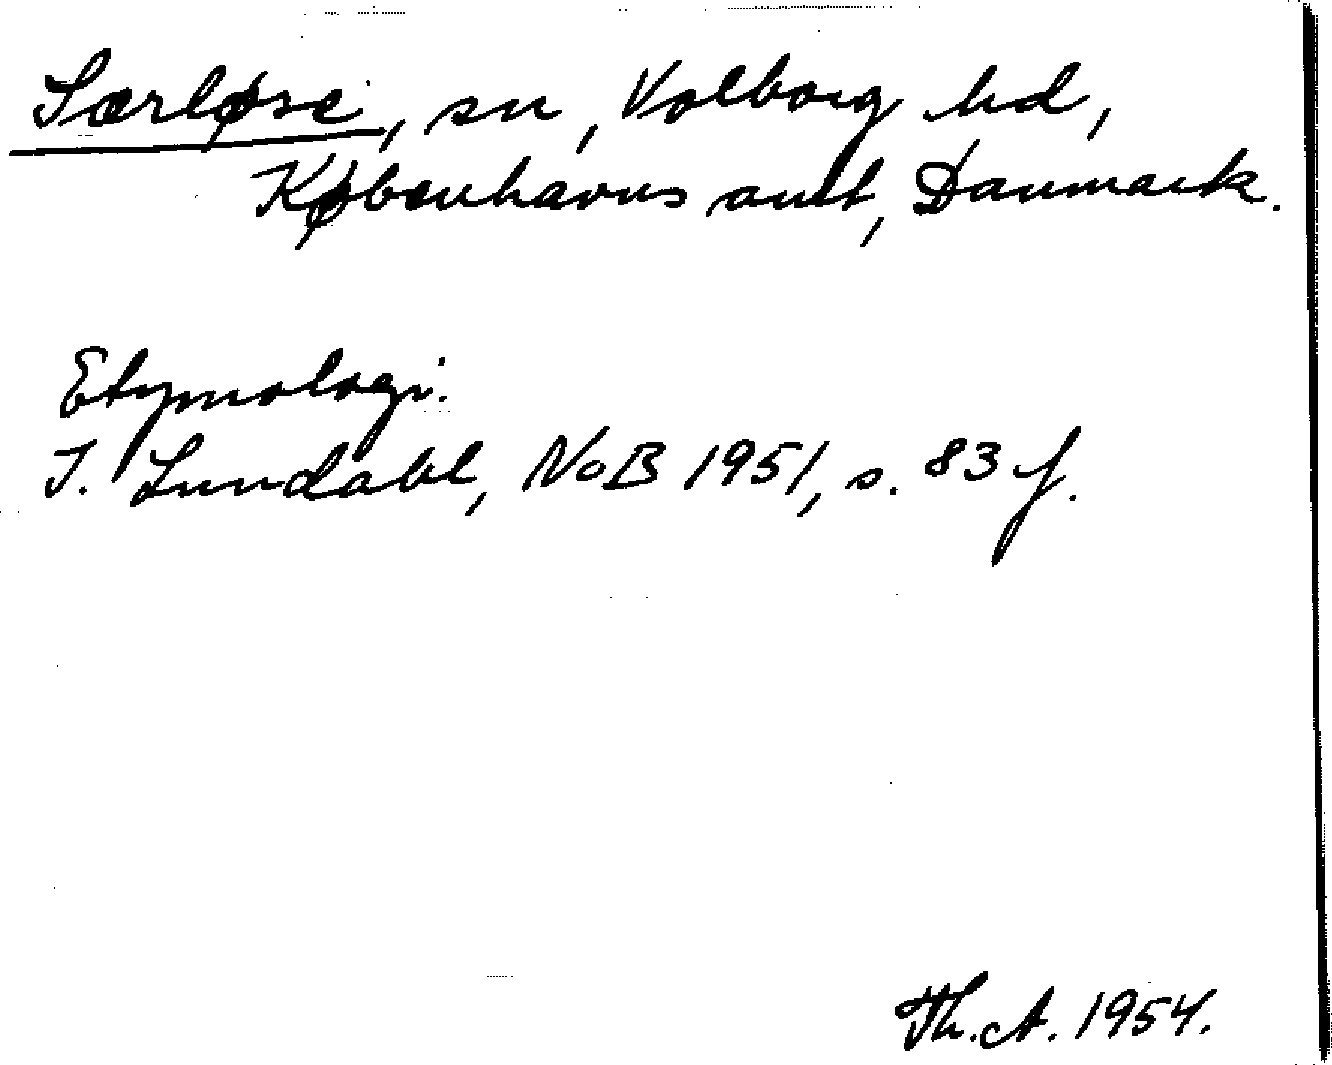 Særløse, sn, Volborg hd,
Københavns amt, Danmark.
Etymologi.
I. Lundahl, NoB 1951, s. 83 f.
Th. A. 1954.